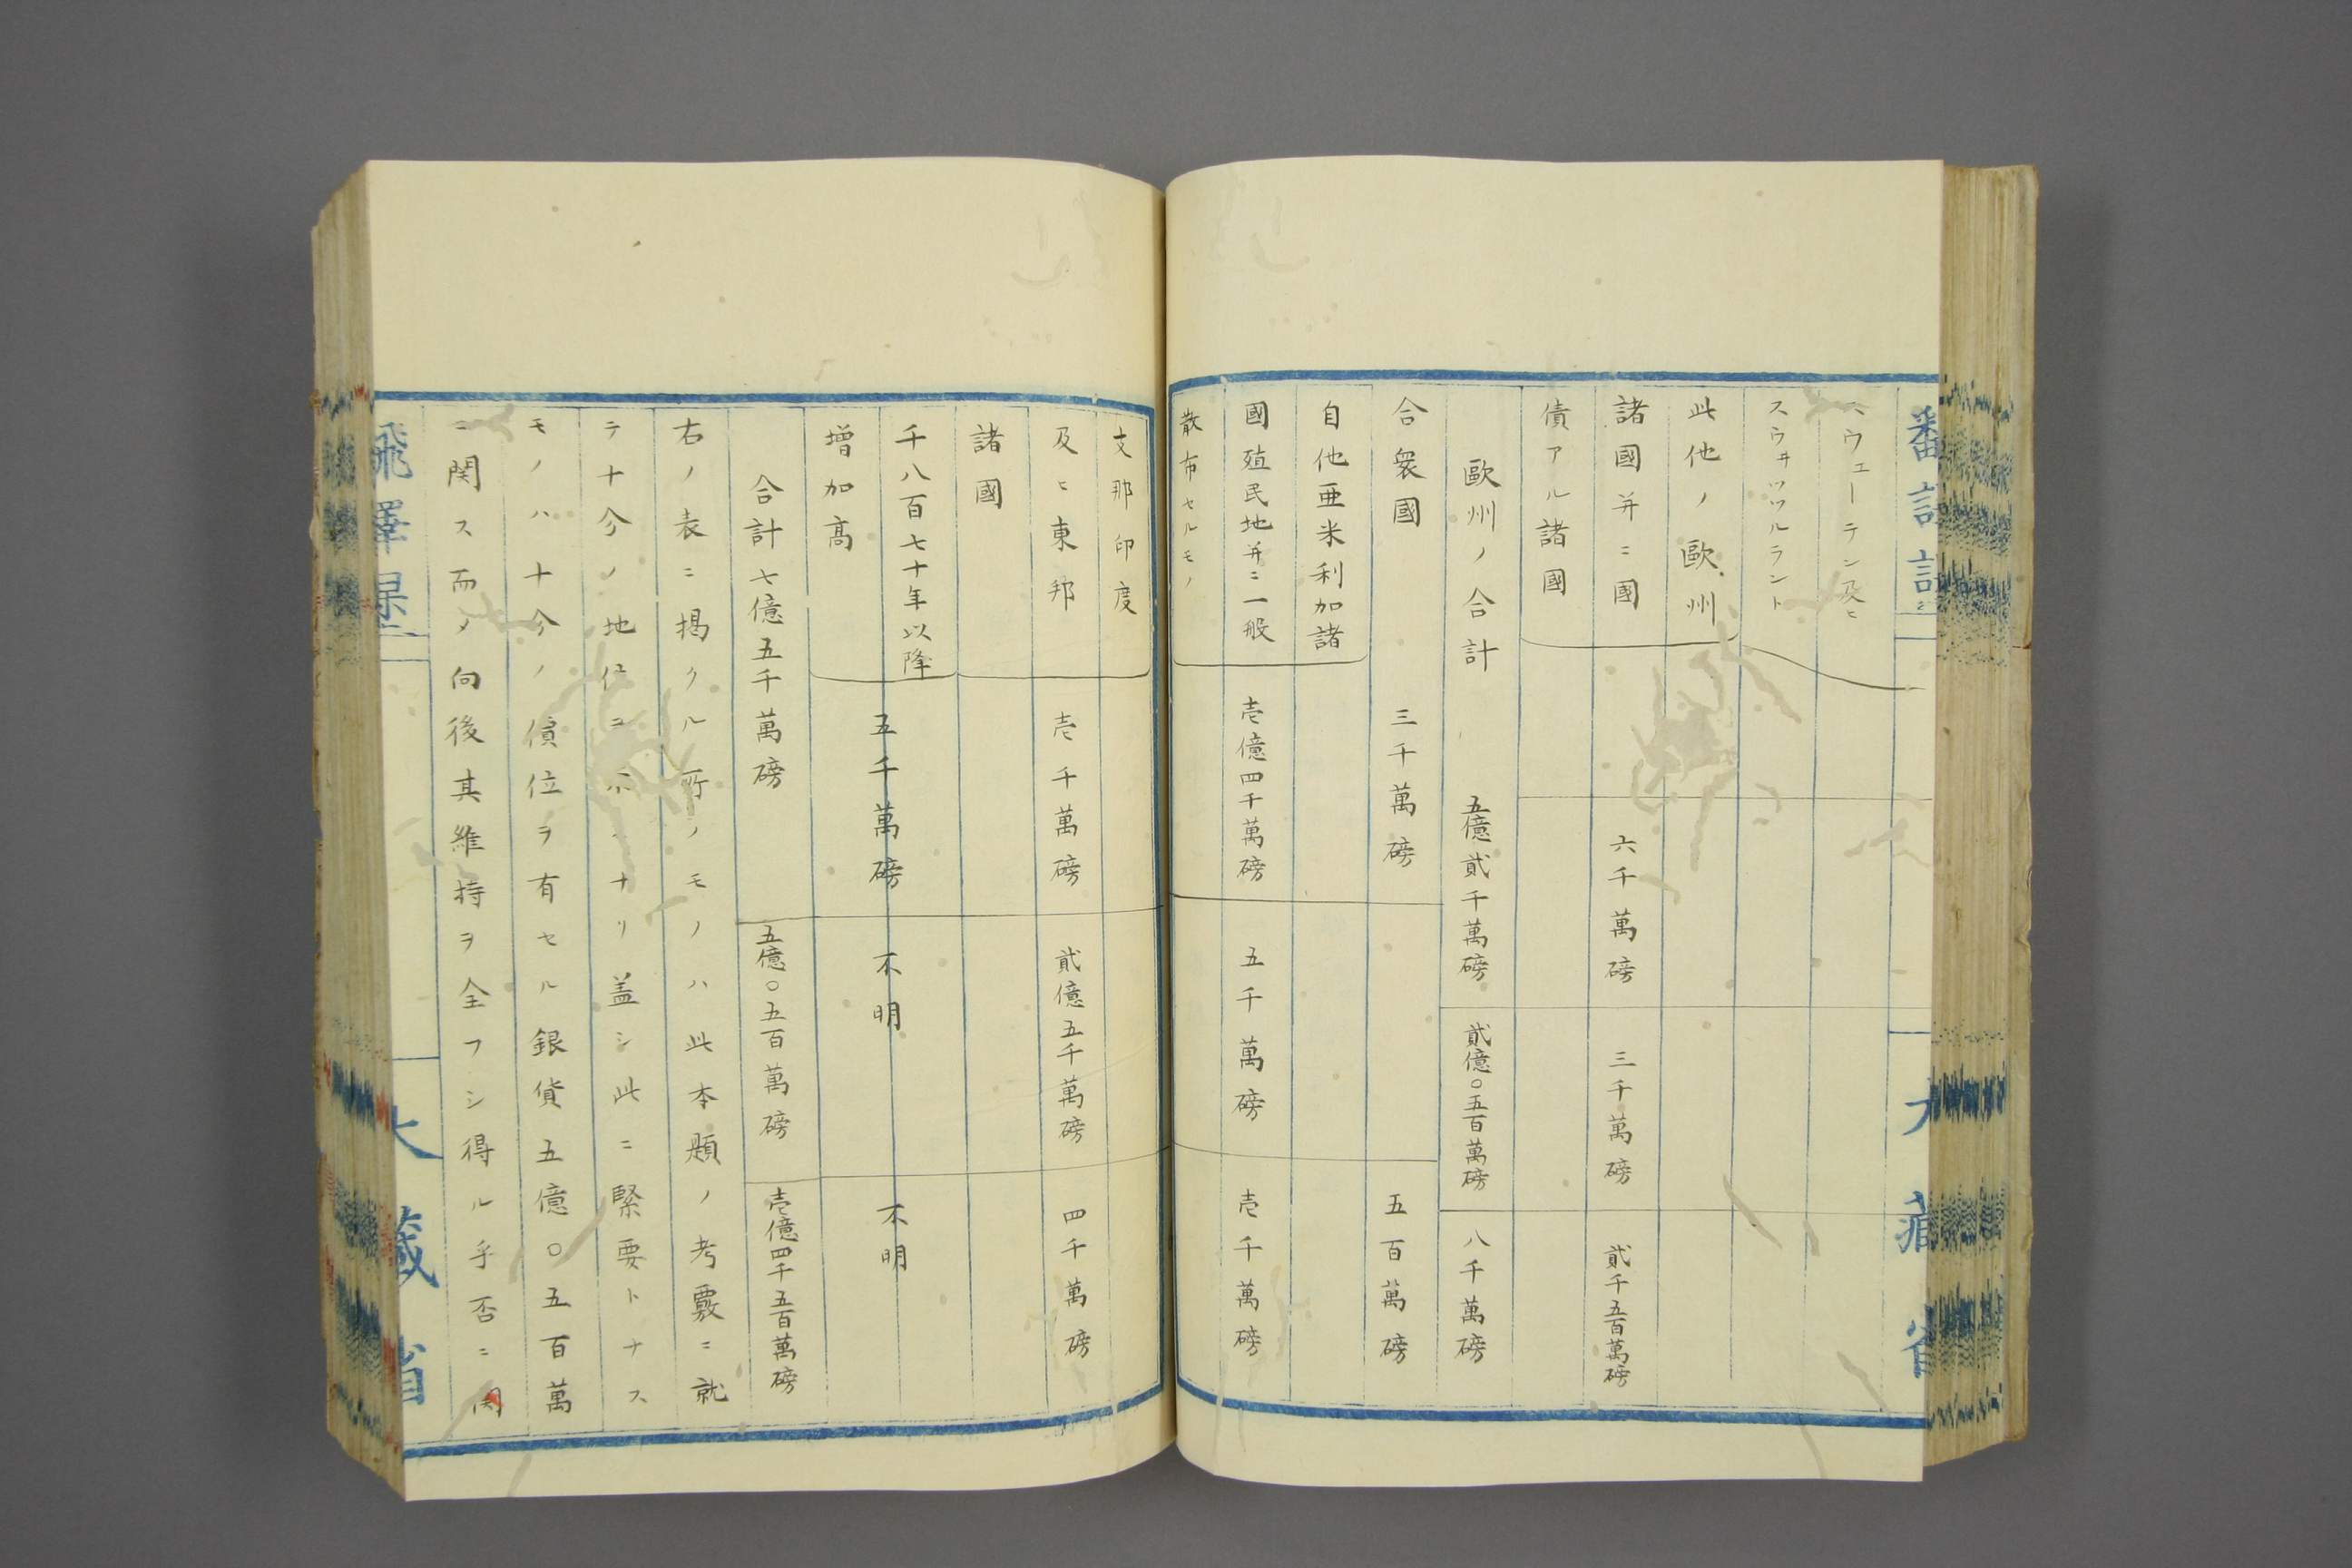 スウエーテン及ヒ
スウヰツツルラント
此他ノ歐州
諸國并ニ國　六千萬磅　三千萬磅　貳千五百萬磅
債アル諸國
歐州ノ合計　五億貳千萬磅　貳億〇五百萬磅　八千萬磅
合衆國　三千萬磅　五百萬磅
自他亜米利加諸
國殖民地并ニ一般　壱億四千萬磅　五千萬磅　壱千萬磅
散布セルモノ
支那印度
及ヒ東邦　壱千萬磅　貳億五千萬磅　四千萬磅
諸國
千八百七十年以降
増加高　五千萬磅　不明　不明
合計七億五千萬磅　五億〇五百萬磅　壱億四千五百萬磅
右ノ表ニ掲クル所ノモノハ此本題ノ考覈ニ就
テ十分ノ地位ニ　ナリ盖シ此ニ緊要トナス
モノハ十分ノ價位ヲ有セル銀貨五億〇五百萬
ニ関ス而ノ向後其維持ヲ全フシ得ル乎否ニ関
大藏省
大藏省